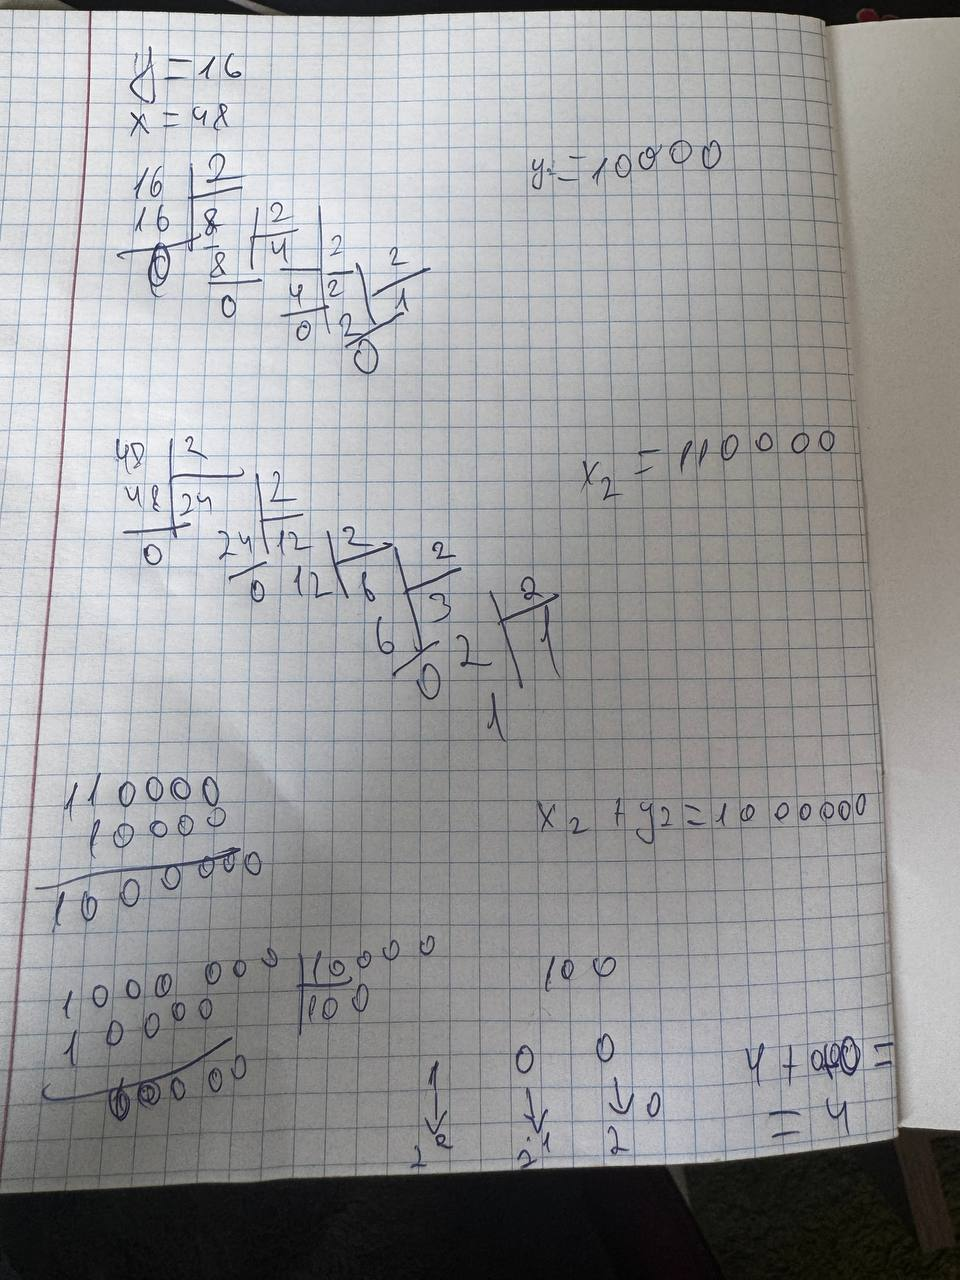 y = 16
x = 48
16 2
16 8 2
0 8 4 2 2
0 4 2 1
0 2
0
y₂ = 10000
48 2
48 24 2
0 24 12 2 2
0 12 6 3 2
6 2 1
0
1
x₂ = 110000
110000
10000
1000000
x₂ + y₂ = 1000000
1000000 10000
10000 100
00000
100
1 0 0
2² 2¹ 2⁰
= 4